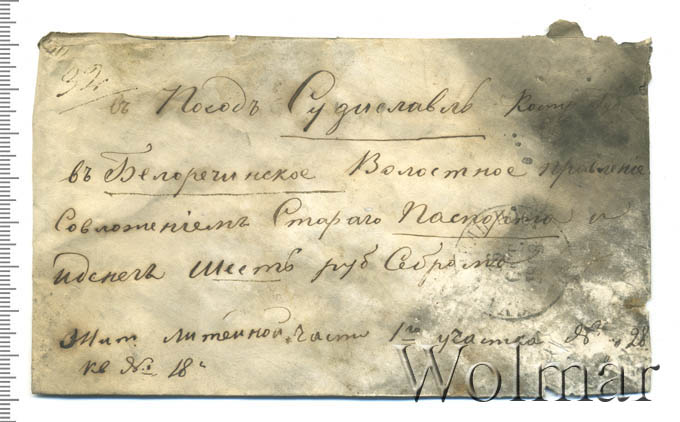 въ Посодъ Судиславль
въ Белоречинское Волостное Правление
Совложениемъ Стараго Паспорта и
иденегъ Шесть руб Себромъ
Жит. литейной части 1го участка № 28
кв № 18
Wolmar